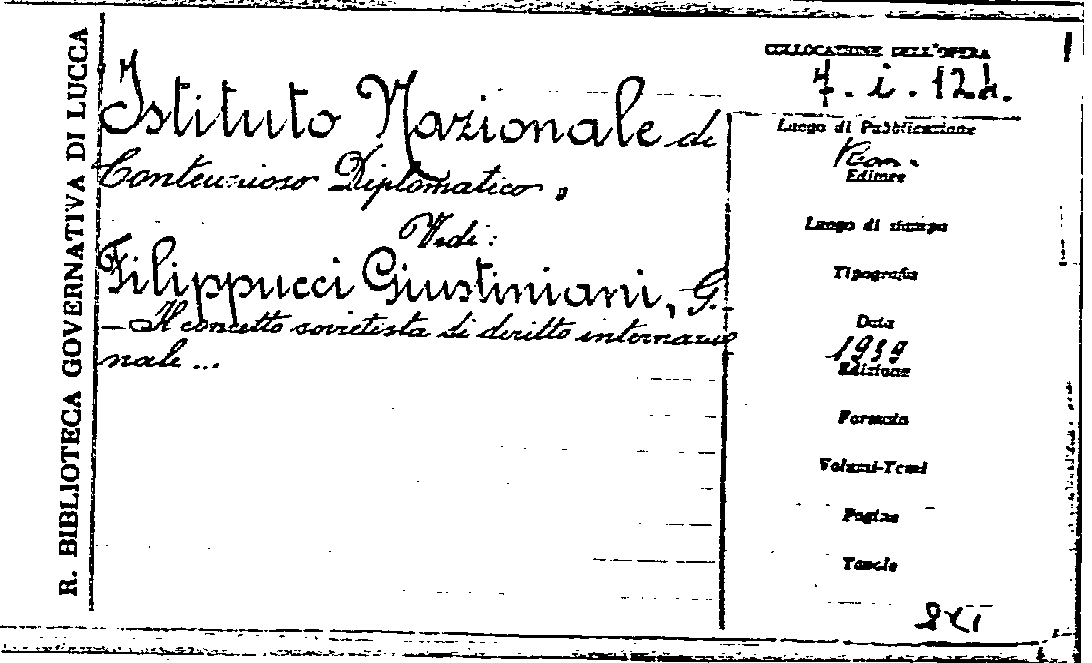 R. BIBLIOTECA GOVERNATIVA DI LUCCA
Istituto Nazionale di
Contenzioso Diplomatico,
Vedi:
Filippucci Giustiniani, G.
- Il concetto sovietista di diritto internazio
nale ...
COLLOCAZIONE DELL'OPERA
7. i. 124.
Luogo di Pubblicazione
Editore
Luogo di stampa
Tipografia
Data
1939
Edizione
Formato
Volumi-Tomi
Pagine
Tavole